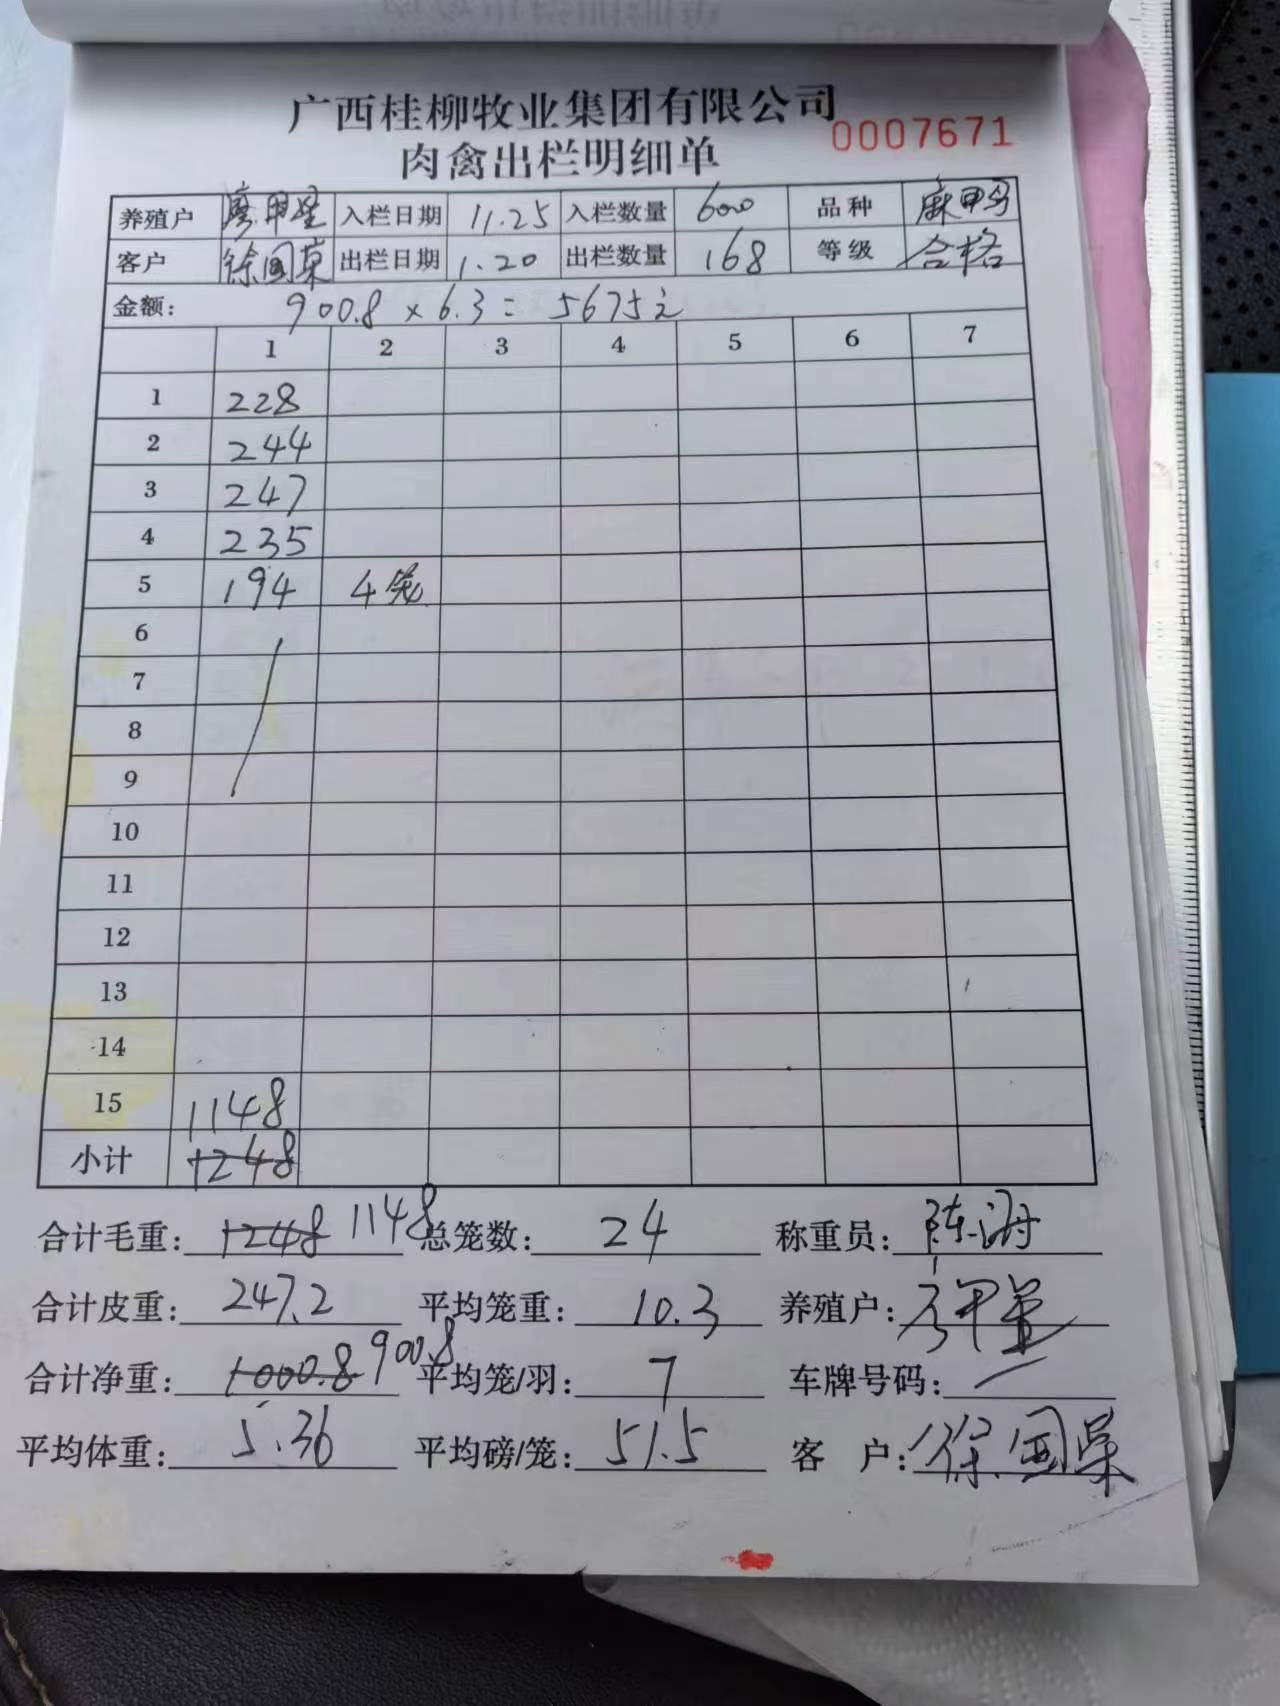 广西桂柳牧业集团有限公司
0007671
肉禽出栏明细单
养殖户 入栏日期 11.25 入栏数量 600 品种
客户 徐国荣 出栏日期 1.20 出栏数量 168 等级 合格
金额: 900.8 × 6.3 = 5675元
1 2 3 4 5 6 7
1 228
2 244
3 247
4 235
5 194 4笼
6
7
8
9
10
11
12
13
14
15 1148
小计 1248
合计毛重: 1248 1148 总笼数: 24 称重员:
合计皮重: 247.2 平均笼重: 10.3 养殖户:
合计净重: 1000.8 900.8 平均笼/羽: 7 车牌号码:
平均体重: 5.36 平均磅/笼: 51.5 客 户: 徐国荣